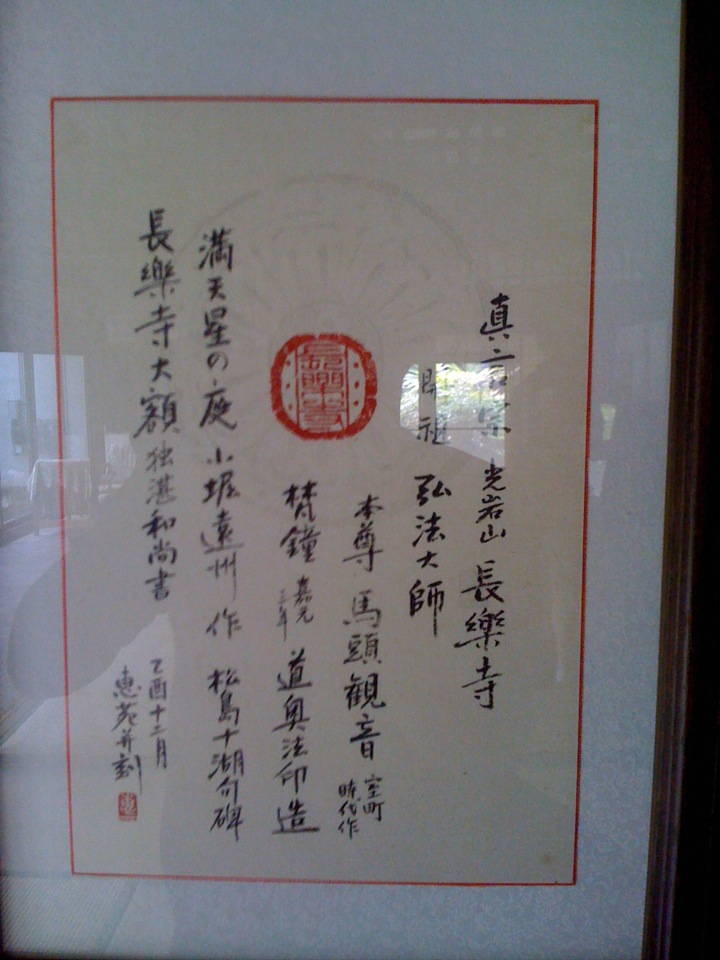 真言宗 光岩山 長樂寺
開祖 弘法大師
本尊 馬頭観音 室町時代作
梵鐘 嘉元三年 道奥法印造
長樂寺
満天星の庭 小堀遠州 作 松島十湖句碑
長樂寺大額 独湛和尚書
乙酉十二月
恵苑并刻